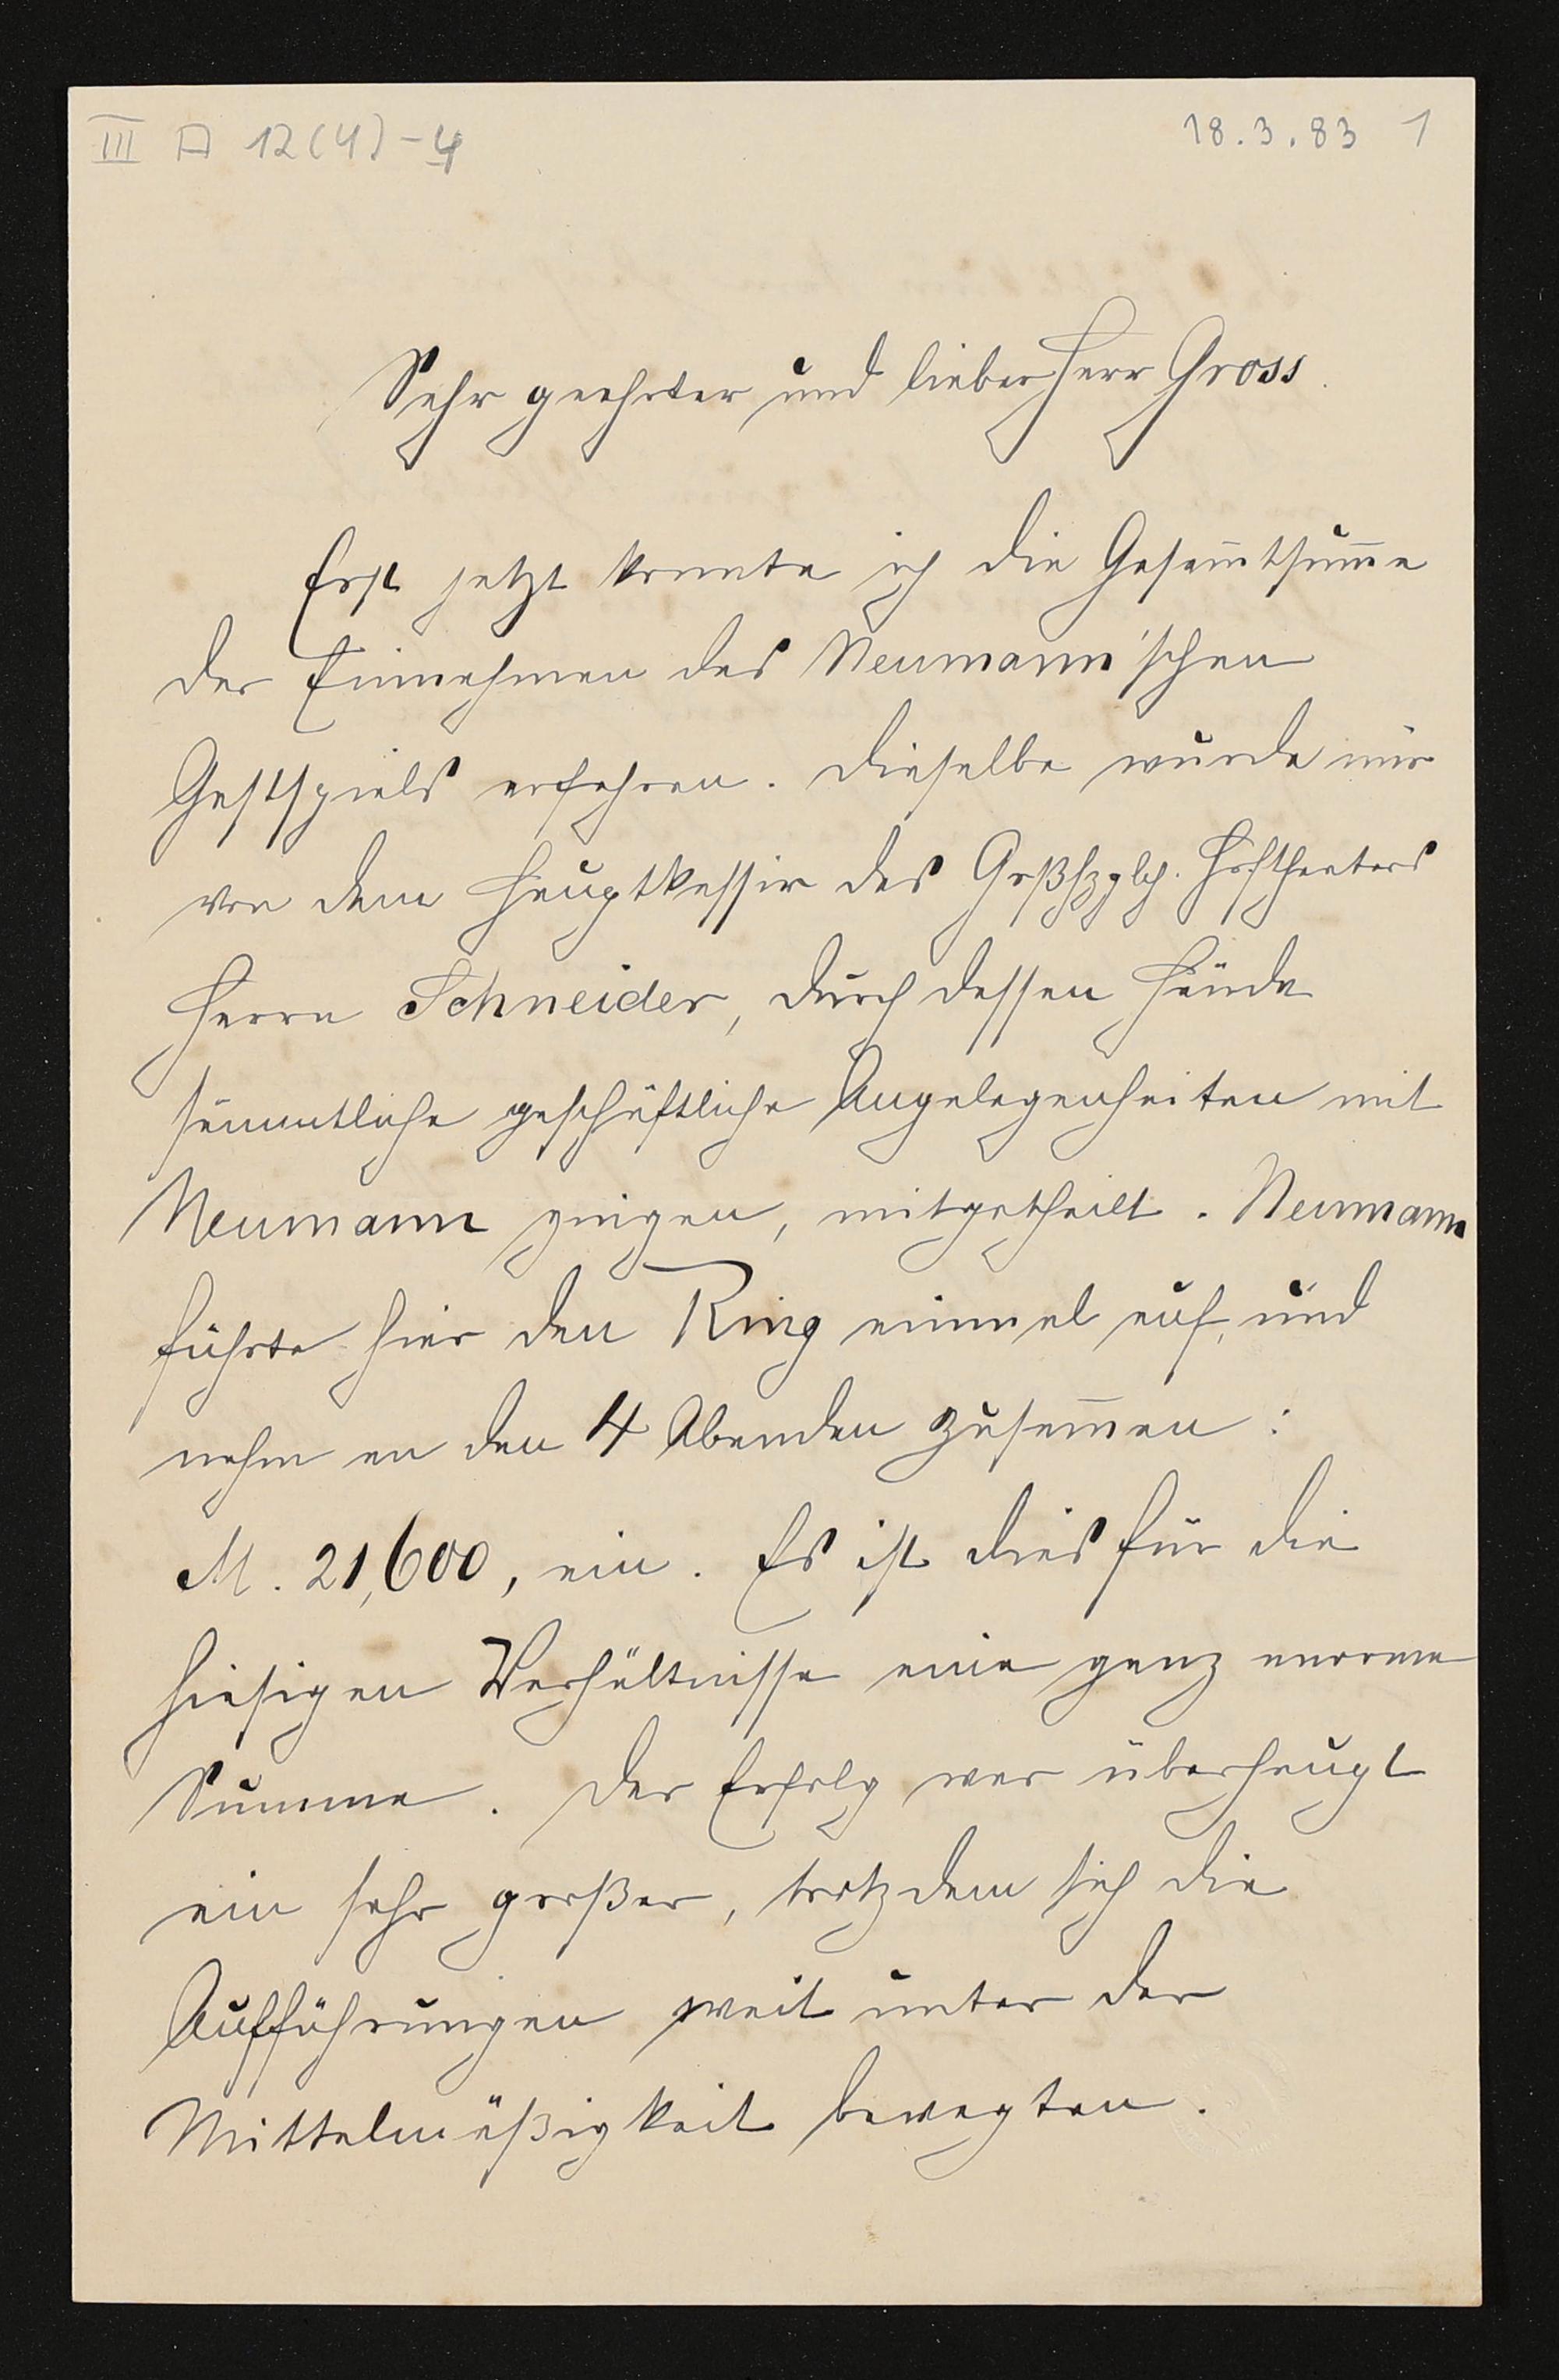 III A 12(4)-4
18.3.83 1
Sehr geehrter und lieber Herr Gross
Erst jetzt konnte ich die Gesam̅tsum̅e
der Einnahmen des Neumann'schen
Gastspiels erfahren. Dieselbe wurde mir
von dem Hauptkassir des Großhzglch. Hoftheaters
Herrn Schneider, durch dessen Hände
sämmtliche geschäftliche Angelegenheiten mit
Neumann gingen, mitgetheilt. Neumann
führte hier den Ring einmal auf, und
nahm an den 4 Abenden zusam̅en:
M. 21,600, ein. Es ist dies für die
hiesigen Verhältnisse eine ganz enorme
Summe. Der Erfolg war überhaupt
ein sehr großer, trotzdem sich die
Aufführungen weit unter der
Mittelmäßigkeit bewegten.